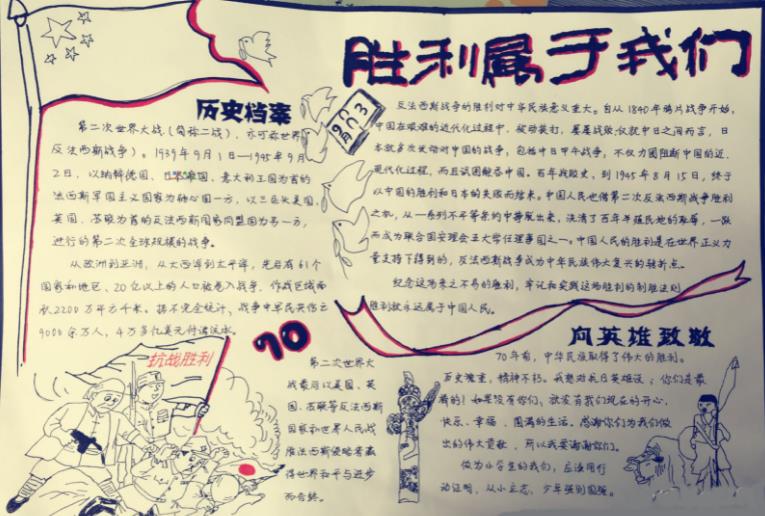 胜利属于我们
历史档案
第二次世界大战(简称二战),亦可称世界
反法西斯战争)。1939年9月1日—1945年9月
2日,以纳粹德国、日本帝国、意大利王国为首的
法西斯军国主义国家为轴心国一方,以三巨头美国、
英国、苏联为首的反法西斯国家同盟国为另一方,
进行的第二次全球规模的战争。
从欧洲到亚洲,从大西洋到太平洋,先后有61个
国家和地区、20亿以上的人口被卷入战争,作战区域面
积2200万平方千米。据不完全统计,战争中军民共伤亡
9000余万人,4万多亿美元付诸流水。
9 3
反法西斯战争的胜利对中华民族意义重大。自从1840年鸦片战争开始,
中国在艰难的近代化过程中,被动装打,屡屡战败,仅就中日之间而言,日
本就多次发动对中国的战争,包括中日甲午战争,不仅力图阻断中国的近、
现代化过程,而且试图鲸吞中国。百年战败史,到1945年8月15日,终于
以中国的胜利和日本的失败而结末。中国人民也借第二次反法西斯战争胜利
之机,从一系列不平等条约中挣脱出来,洗清了百年半殖民地的耻辱,一跃
而成为联合国安理会五大常任理事国之一。中国人民的胜利是在世界正义力
量支持下得到的,反法西斯战争成为中华民族伟大复兴的转折点。
纪念这场来之不易的胜利,牢记和实践这场胜利的制胜法则
胜利就永远属于中国人民。
70
抗战胜利
第二次世界大
战最后以美国、英
国、苏联等反法西斯
国家和世界人民战
胜法西斯侵略者赢
得世界和平与进步
而告终。
向英雄致敬
70年前,中华民族取得了伟大的胜利。
历史沧重,精神不朽。我想对抗日英雄说:你们是最
棒的!如果没有你们,就没有我们现在的开心、
快乐、幸福、圆满的生活。感谢你们为我们做
出的伟大贡献,所以我要谢谢你们。
做为小学生的我们,应该用行
动证明,从小立志,少年强则国强。